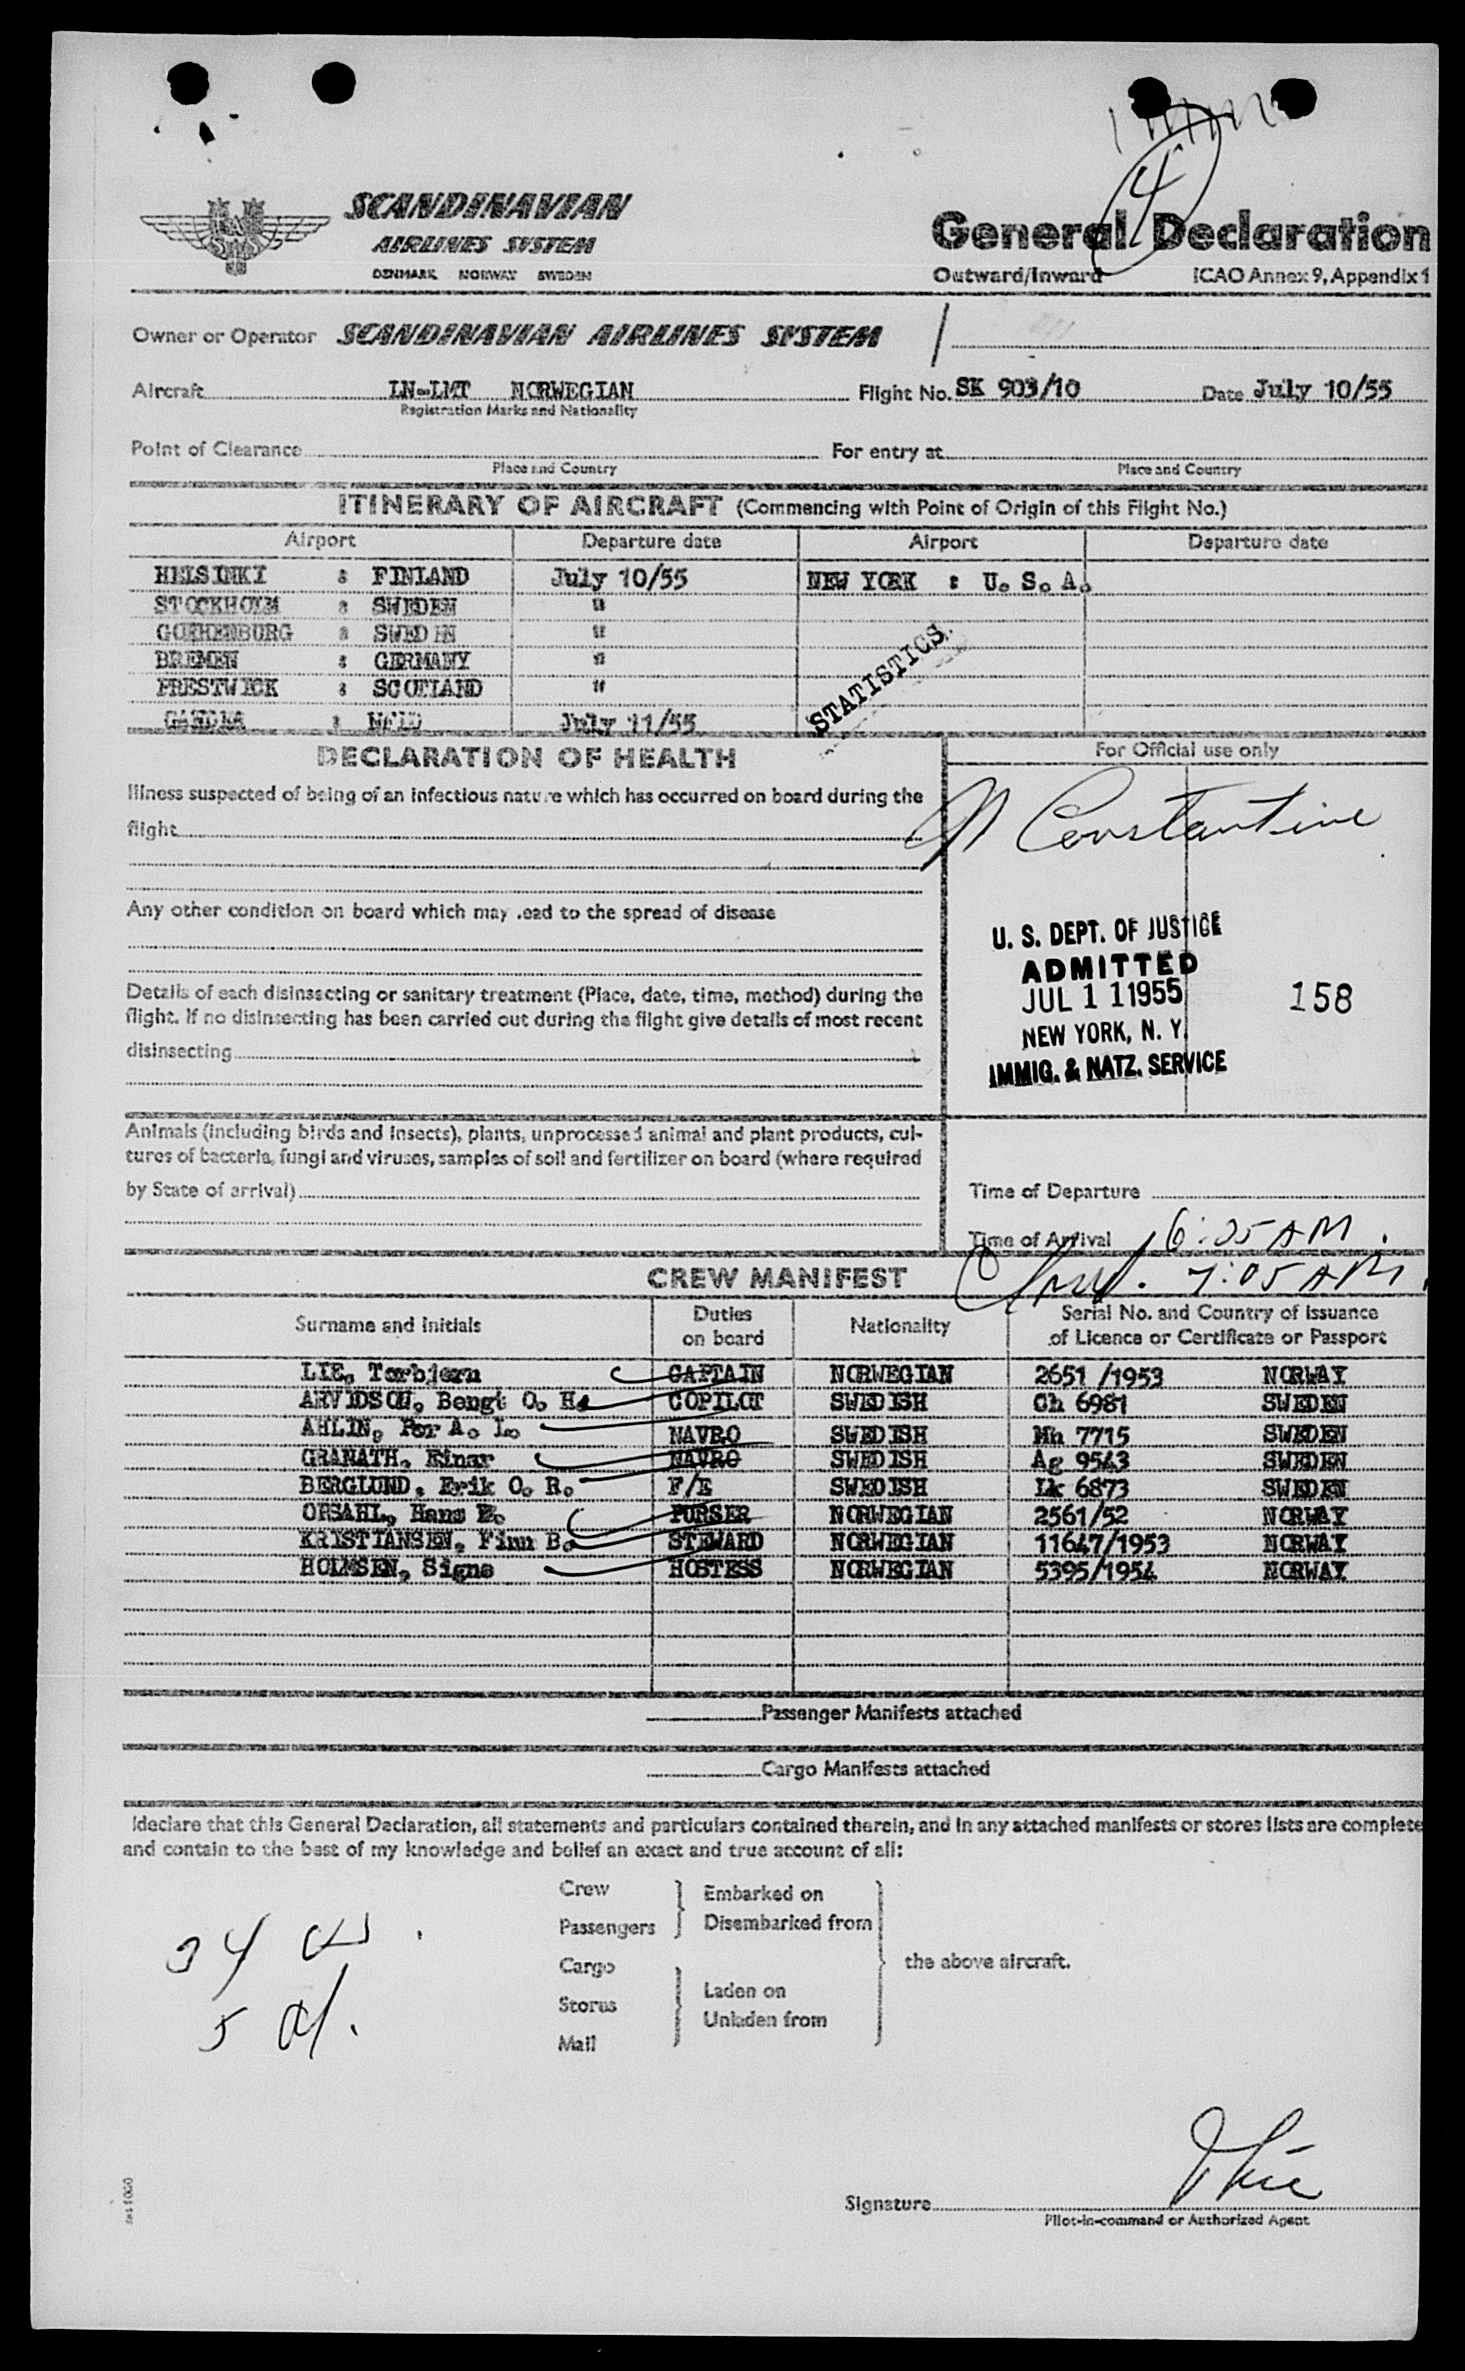 4
SCANDINAVIAN
AIRLINES SYSTEM
DENMARK NORWAY SWEDEN
SAS
General Declaration
Outward/Inward ICAO Annex 9, Appendix 1
Owner or Operator SCANDINAVIAN AIRLINES SYSTEM
Aircraft LN-LMT NORWEGIAN Flight No. SK 903/10 Date July 10/55
Registration Marks and Nationality
Point of Clearance For entry at
Place and Country Place and Country
ITINERARY OF AIRCRAFT (Commencing with Point of Origin of this Flight No.)
Airport Departure date Airport Departure date
HELSINKI : FINLAND July 10/55 NEW YORK : U. S. A.
STOCKHOLM : SWEDEN "
GOTHENBURG : SWEDEN "
BREMEN : GERMANY "
PRESTWICK : SCOTLAND "
GANDER : NFLD July 11/55
STATISTICS
DECLARATION OF HEALTH
For Official use only
Illness suspected of being of an infectious nature which has occurred on board during the
flight
Constantine
Any other condition on board which may lead to the spread of disease
U. S. DEPT. OF JUSTICE
ADMITTED
JUL 11 1955
NEW YORK, N. Y.
IMMIG. & NATZ. SERVICE
158
Details of each disinsecting or sanitary treatment (Place, date, time, method) during the
flight. If no disinsecting has been carried out during the flight give details of most recent
disinsecting
Animals (including birds and insects), plants, unprocessed animal and plant products, cul-
tures of bacteria, fungi and viruses, samples of soil and fertilizer on board (where required
by State of arrival)
Time of Departure
Time of Arrival 6:05 AM
7:05 AM
CREW MANIFEST
Surname and Initials Duties on board Nationality Serial No. and Country of Issuance of Licence or Certificate or Passport
LIE, Torbjern CAPTAIN NORWEGIAN 2651 /1953 NORWAY
ARVIDSON, Bengt O. H. COPILOT SWEDISH Ch 6981 SWEDEN
AHLIN, Per A. L. NAVRO SWEDISH Mh 7715 SWEDEN
GRANATH, Einar NAVRO SWEDISH Ag 9543 SWEDEN
BERGLUND, Erik O. R. F/E SWEDISH Lk 6873 SWEDEN
ORSAHL, Hans E. PURSER NORWEGIAN 2561/52 NORWAY
KRISTIANSEN, Finn B. STEWARD NORWEGIAN 11647/1953 NORWAY
HOLMSEN, Signe HOSTESS NORWEGIAN 5395/1954 NORWAY
Passenger Manifests attached
Cargo Manifests attached
I declare that this General Declaration, all statements and particulars contained therein, and in any attached manifests or stores lists are complete
and contain to the best of my knowledge and belief an exact and true account of all:
Crew
Passengers
Embarked on
Disembarked from
Cargo
Stores
Mail
Laden on
Unladen from
the above aircraft.
34
5
Signature
Pilot-in-command or Authorized Agent